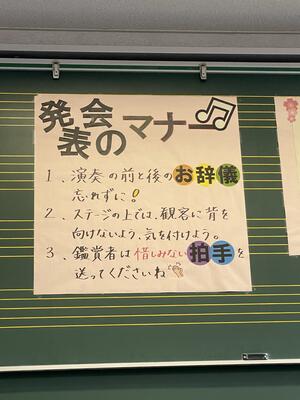 発会
表のマナー
1、演奏の前と後のお辞儀
忘れずに!
2、ステージの上では、観客に背を
向けないよう、気を付けよう。
3、鑑賞者は惜しみない拍手を
送ってくださいね